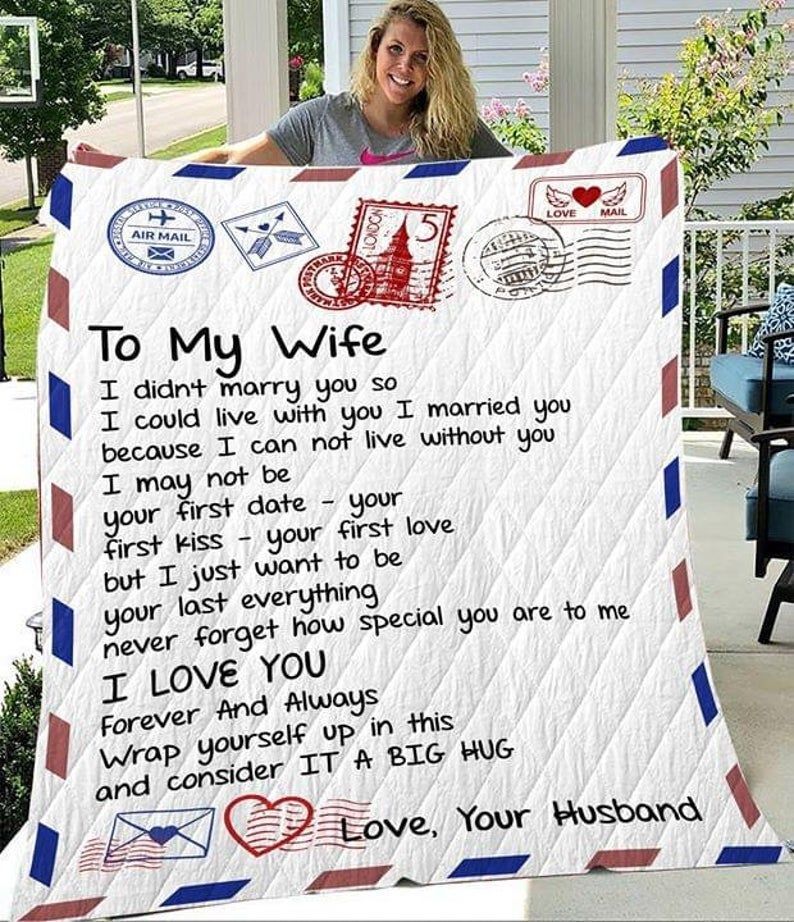 AIR MAIL
LONDON
5
POSTMARK
LOVE MAIL
To My Wife
I didn't marry you so
I could live with you I married you
because I can not live without you
I may not be
your first date - your
first kiss - your first love
but I just want to be
your last everything
never forget how special you are to me
I LOVE YOU
Forever And Always
Wrap yourself up in this
and consider IT A BIG HUG
Love, Your Husband